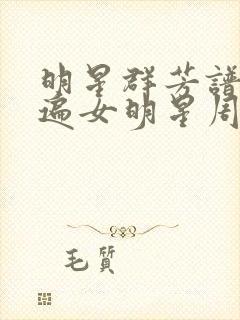 明星群芳譜
遍女明星周
毛質